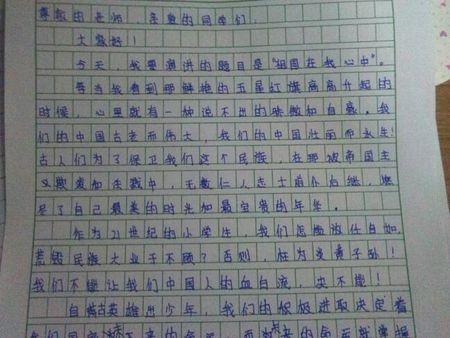 尊敬的老师，亲爱的同学们，
大家好！
今天，我要演讲的题目是“祖国在我心中”。
每当我看到那鲜艳的五星红旗高高升起的
时候，心里就有一种说不出的骄傲和自豪。我
们的中国古老而伟大，我们的中国壮丽而永生！
古人们为了保卫我们这个民族，在那被帝国主
义欺凌和失战中，无数仁人志士前仆后继，燃
尽了自己最美的时光和最宝贵的年华。
作为21世纪的小学生，我们怎能放任自如，
荒锻民族大业于不顾？否则，枉为炎黄子孙！
我们不能让我们中国人的血白流，决不能！
自古英雄出少年，我们的积极进取决定着
我们国家未来的命运，而未来的命运就掌握